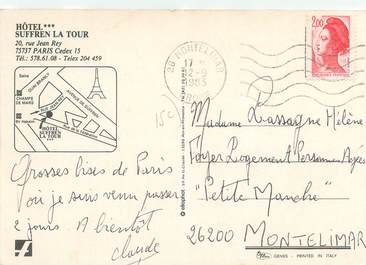 HÔTEL***
SUFFREN LA TOUR
20, rue Jean Rey
75737 PARIS Cedex 15
Tél.: 578.61.08 - Telex 204 459
Seine
QUAI BRANLY
CHAMP
DE MARS
RUE JEAN REY
AVENUE DE SUFFREN
HÔTEL
SUFFREN
LA TOUR
Grosses bises de Paris
où je suis venu passer
2 jours A bientôt
claude
26 MONTELIMAR
17 H
2-9
1985
2,00
15c
Madame Lassagne Hélène
Foyer Logement Personnes Agées
"Petite Manche"
26200 MONTELIMAR
PRINTED IN ITALY